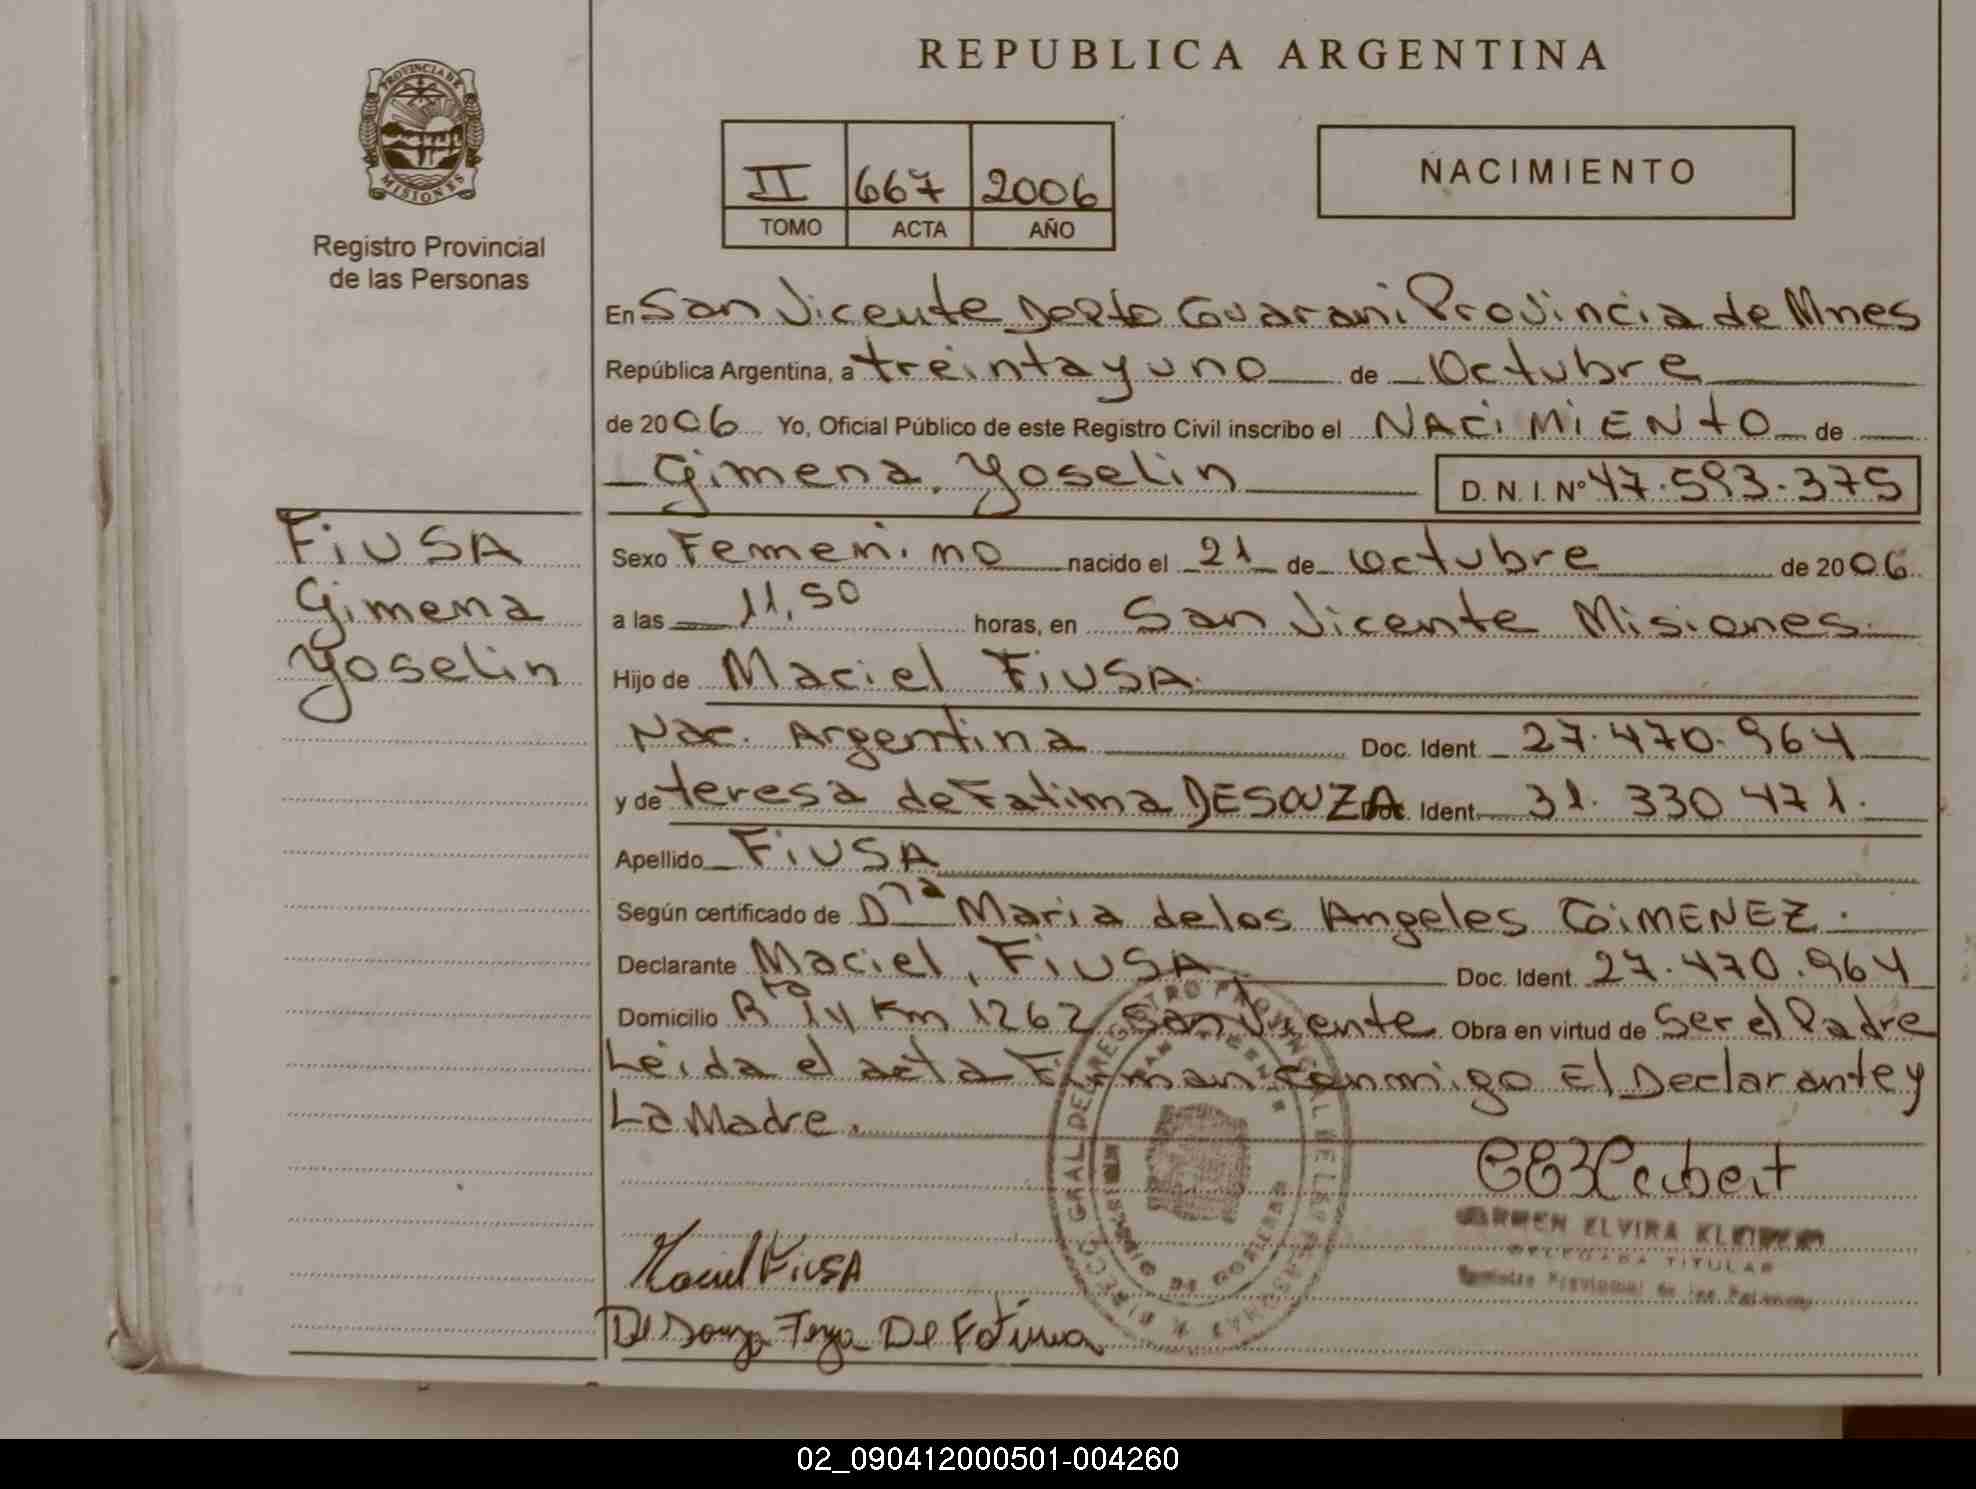 REPUBLICA ARGENTINA
PROVINCIA DE
MISIONES
Registro Provincial
de las Personas
II 667 2006
TOMO ACTA AÑO
NACIMIENTO
En San Vicente Depto Guarani Provincia de Mnes
República Argentina, a treinta y uno de Octubre
de 2006 Yo, Oficial Público de este Registro Civil inscribo el NACIMIENTO de
Gimena, Yoselin D. N. I. Nº 47.593.375
FIUSA
Gimena
Yoselin
Sexo Femenino nacido el 21 de Octubre de 2006
a las 11,50 horas, en San Vicente Misiones.
Hijo de Maciel FIUSA.
Nac. Argentina Doc. Ident. 27.470.964
y de teresa de Fatima DESOUZA Doc. Ident. 31.330 471.
Apellido FIUSA
Según certificado de Dra Maria de los Angeles GIMENEZ.
Declarante Maciel, FIUSA Doc. Ident. 27.470.964
Domicilio Rta 14 Km 1262 San Vicente Obra en virtud de Ser el Padre
Leida el acta Firman conmigo El Declarante y
La Madre.
CARMEN ELVIRA
DELEGADA TITULAR
Registro Provincial de las Personas
Maciel FIUSA
De Souza De Fatima
DIRECC. GRAL. DEL REGISTRO PROVINCIAL DE LAS PERSONAS
SAN VICENTE
MINISTERIO DE GOBIERNO
02_090412000501-004260